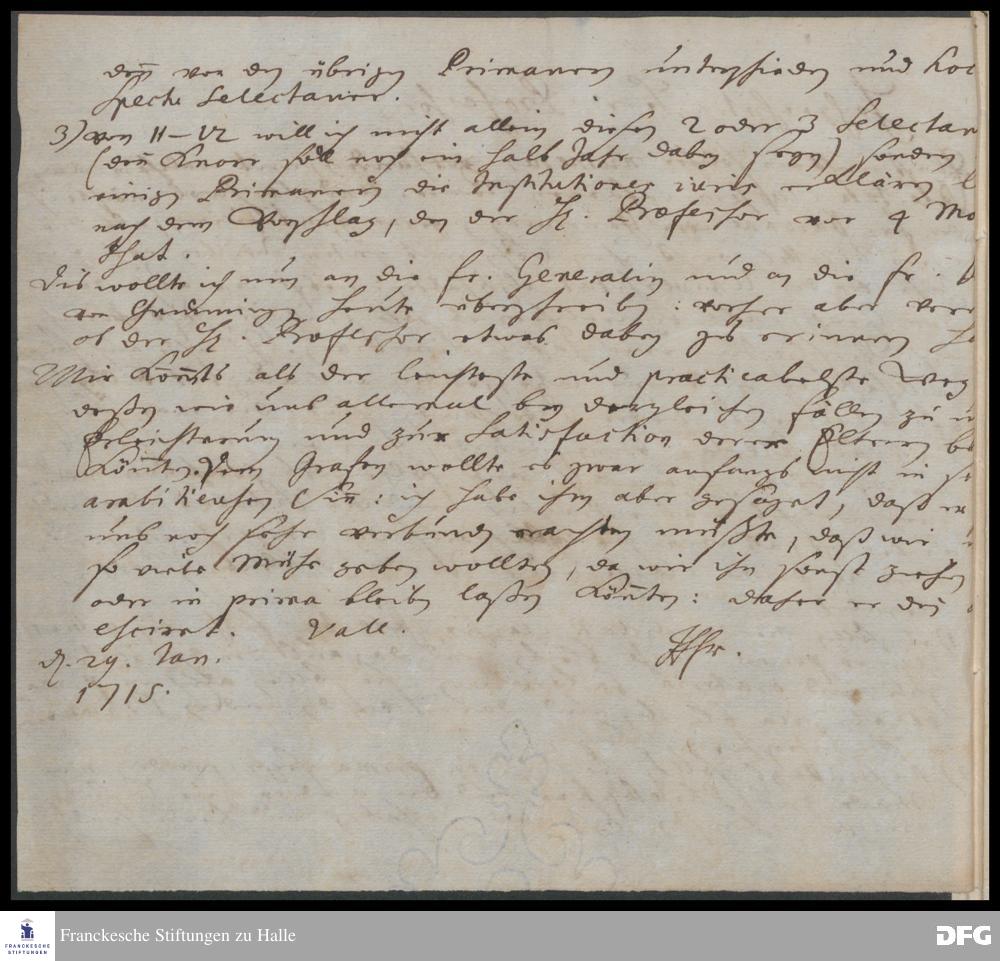 denn von den übrigen Primanern unterschieden und hoc
respectu Selectaner.
3) von 11–12 will ich nicht allein diesen 2 oder 3 Selectan
(denn Knorr soll noch ein halb Jahr dabey seyn) sondern
einigen Primanern die Institutiones iuris erklären
nach dem Vorschlag, den der H. Professor vor 4 Mo
that.
Dis wollte ich nun an die fr. Generalin und an die fr.
von heute überschreiben: vorher aber
ob der H. Professor etwas dabey zu erinnern
Mir kommts als der leichteste und practicabelste Weg
deßen wir uns allemal bey dergleichen Fällen zu
Erleichterung und zur Satisfaction derer Eltern
könnten. Dem Grafen wollte es zwar anfangs nicht in
Sinn: ich habe ihm aber gesaget, daß er
uns noch sehr verbunden achten müßte, daß wir
so viele Mühe geben wollten, da wir ihn sonst
oder in prima bleiben laßen könten: daher er
Vale.
d. 29. Jan.
1715.
FRANCKESCHE
STIFTUNGEN
Franckesche Stiftungen zu Halle
DFG